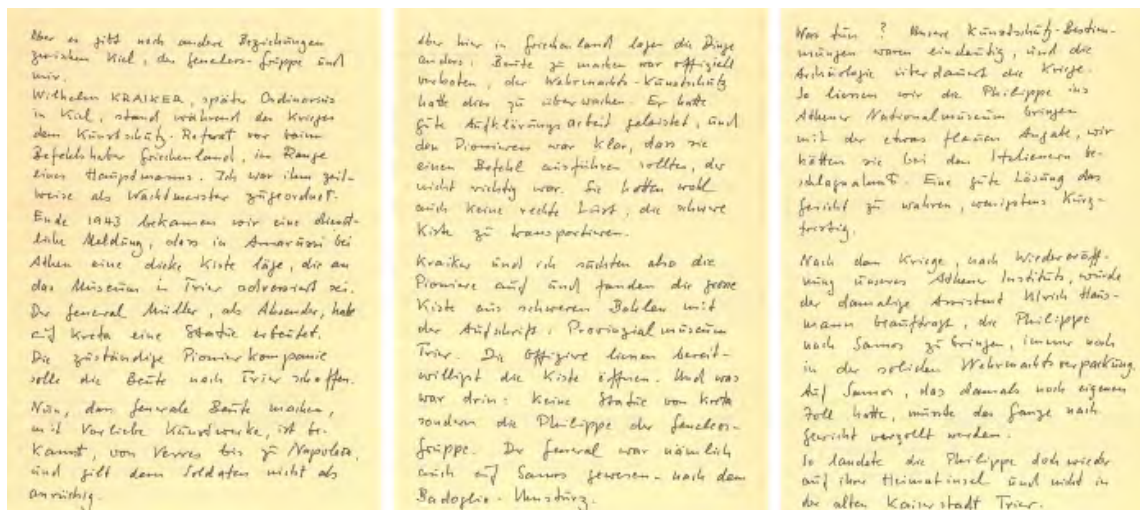 Aber es gibt noch andere Beziehungen
zwischen Kiel, der Geneleos-Gruppe und
mir.
Wilhelm KRAIKER, später Ordinarius
in Kiel, stand während des Krieges
dem Kunstschutz-Referat vor beim
Befehlshaber Griechenland, im Range
eines Hauptmanns. Ich war ihm zeit-
weise als Wachtmeister zugeordnet.
Ende 1943 bekamen wir eine dienst-
liche Meldung, dass in Amarussi bei
Athen eine dicke Kiste läge, die an
das Museum in Trier adressiert sei.
Der General Müller, als Absender, habe
auf Kreta eine Statue erbeutet.
Die zuständige Pionierkompanie
solle die Beute nach Trier schaffen.
Nun, dass Generale Beute machen,
mit Vorliebe Kunstwerke, ist be-
kannt, von Verres bis zu Napoleon,
und gilt dem Soldaten nicht als
anrüchig.
Aber hier in Griechenland lagen die Dinge
anders: Beute zu machen war offiziell
verboten, der Wehrmachts-Kunstschutz
hatte dies zu überwachen. Er hatte
gute Aufklärungsarbeit geleistet, und
den Pionieren war klar, dass sie
einen Befehl ausführen sollten, der
nicht richtig war. Sie hatten wohl
auch keine rechte Lust, die schwere
Kiste zu transportieren.
Kraiker und ich suchten also die
Pioniere auf und fanden die grosse
Kiste aus schweren Bohlen mit
der Aufschrift: Provinzialmuseum
Trier. Die Offiziere liessen bereit-
willigst die Kiste öffnen. Und was
war drin: Keine Statue von Kreta
sondern die Philippe der Geneleos-
Gruppe. Der General war nämlich
auch auf Samos gewesen - nach dem
Badoglio-Umsturz.
Was tun? Unsere Kunstschutz-Bestim-
mungen waren eindeutig, und die
Archäologie überdauert die Kriege.
So liessen wir die Philippe ins
Athener Nationalmuseum bringen
mit der etwas flauen Angabe, wir
hätten sie bei den Italienern be-
schlagnahmt. Eine gute Lösung das
Gesicht zu wahren, wenigstens kurz-
fristig.
Nach dem Kriege, nach Wiedereröff-
nung unseres Athener Instituts, wurde
der damalige Assistent Ulrich Haus-
mann beauftragt, die Philippe
nach Samos zu bringen, immer noch
in der soliden Wehrmachtsverpackung.
Auf Samos, das damals noch eigenen
Zoll hatte, musste das Ganze nach
Gewicht verzollt werden.
So landete die Philippe doch wieder
auf ihrer Heimatinsel und nicht in
der alten Kaiserstadt Trier.